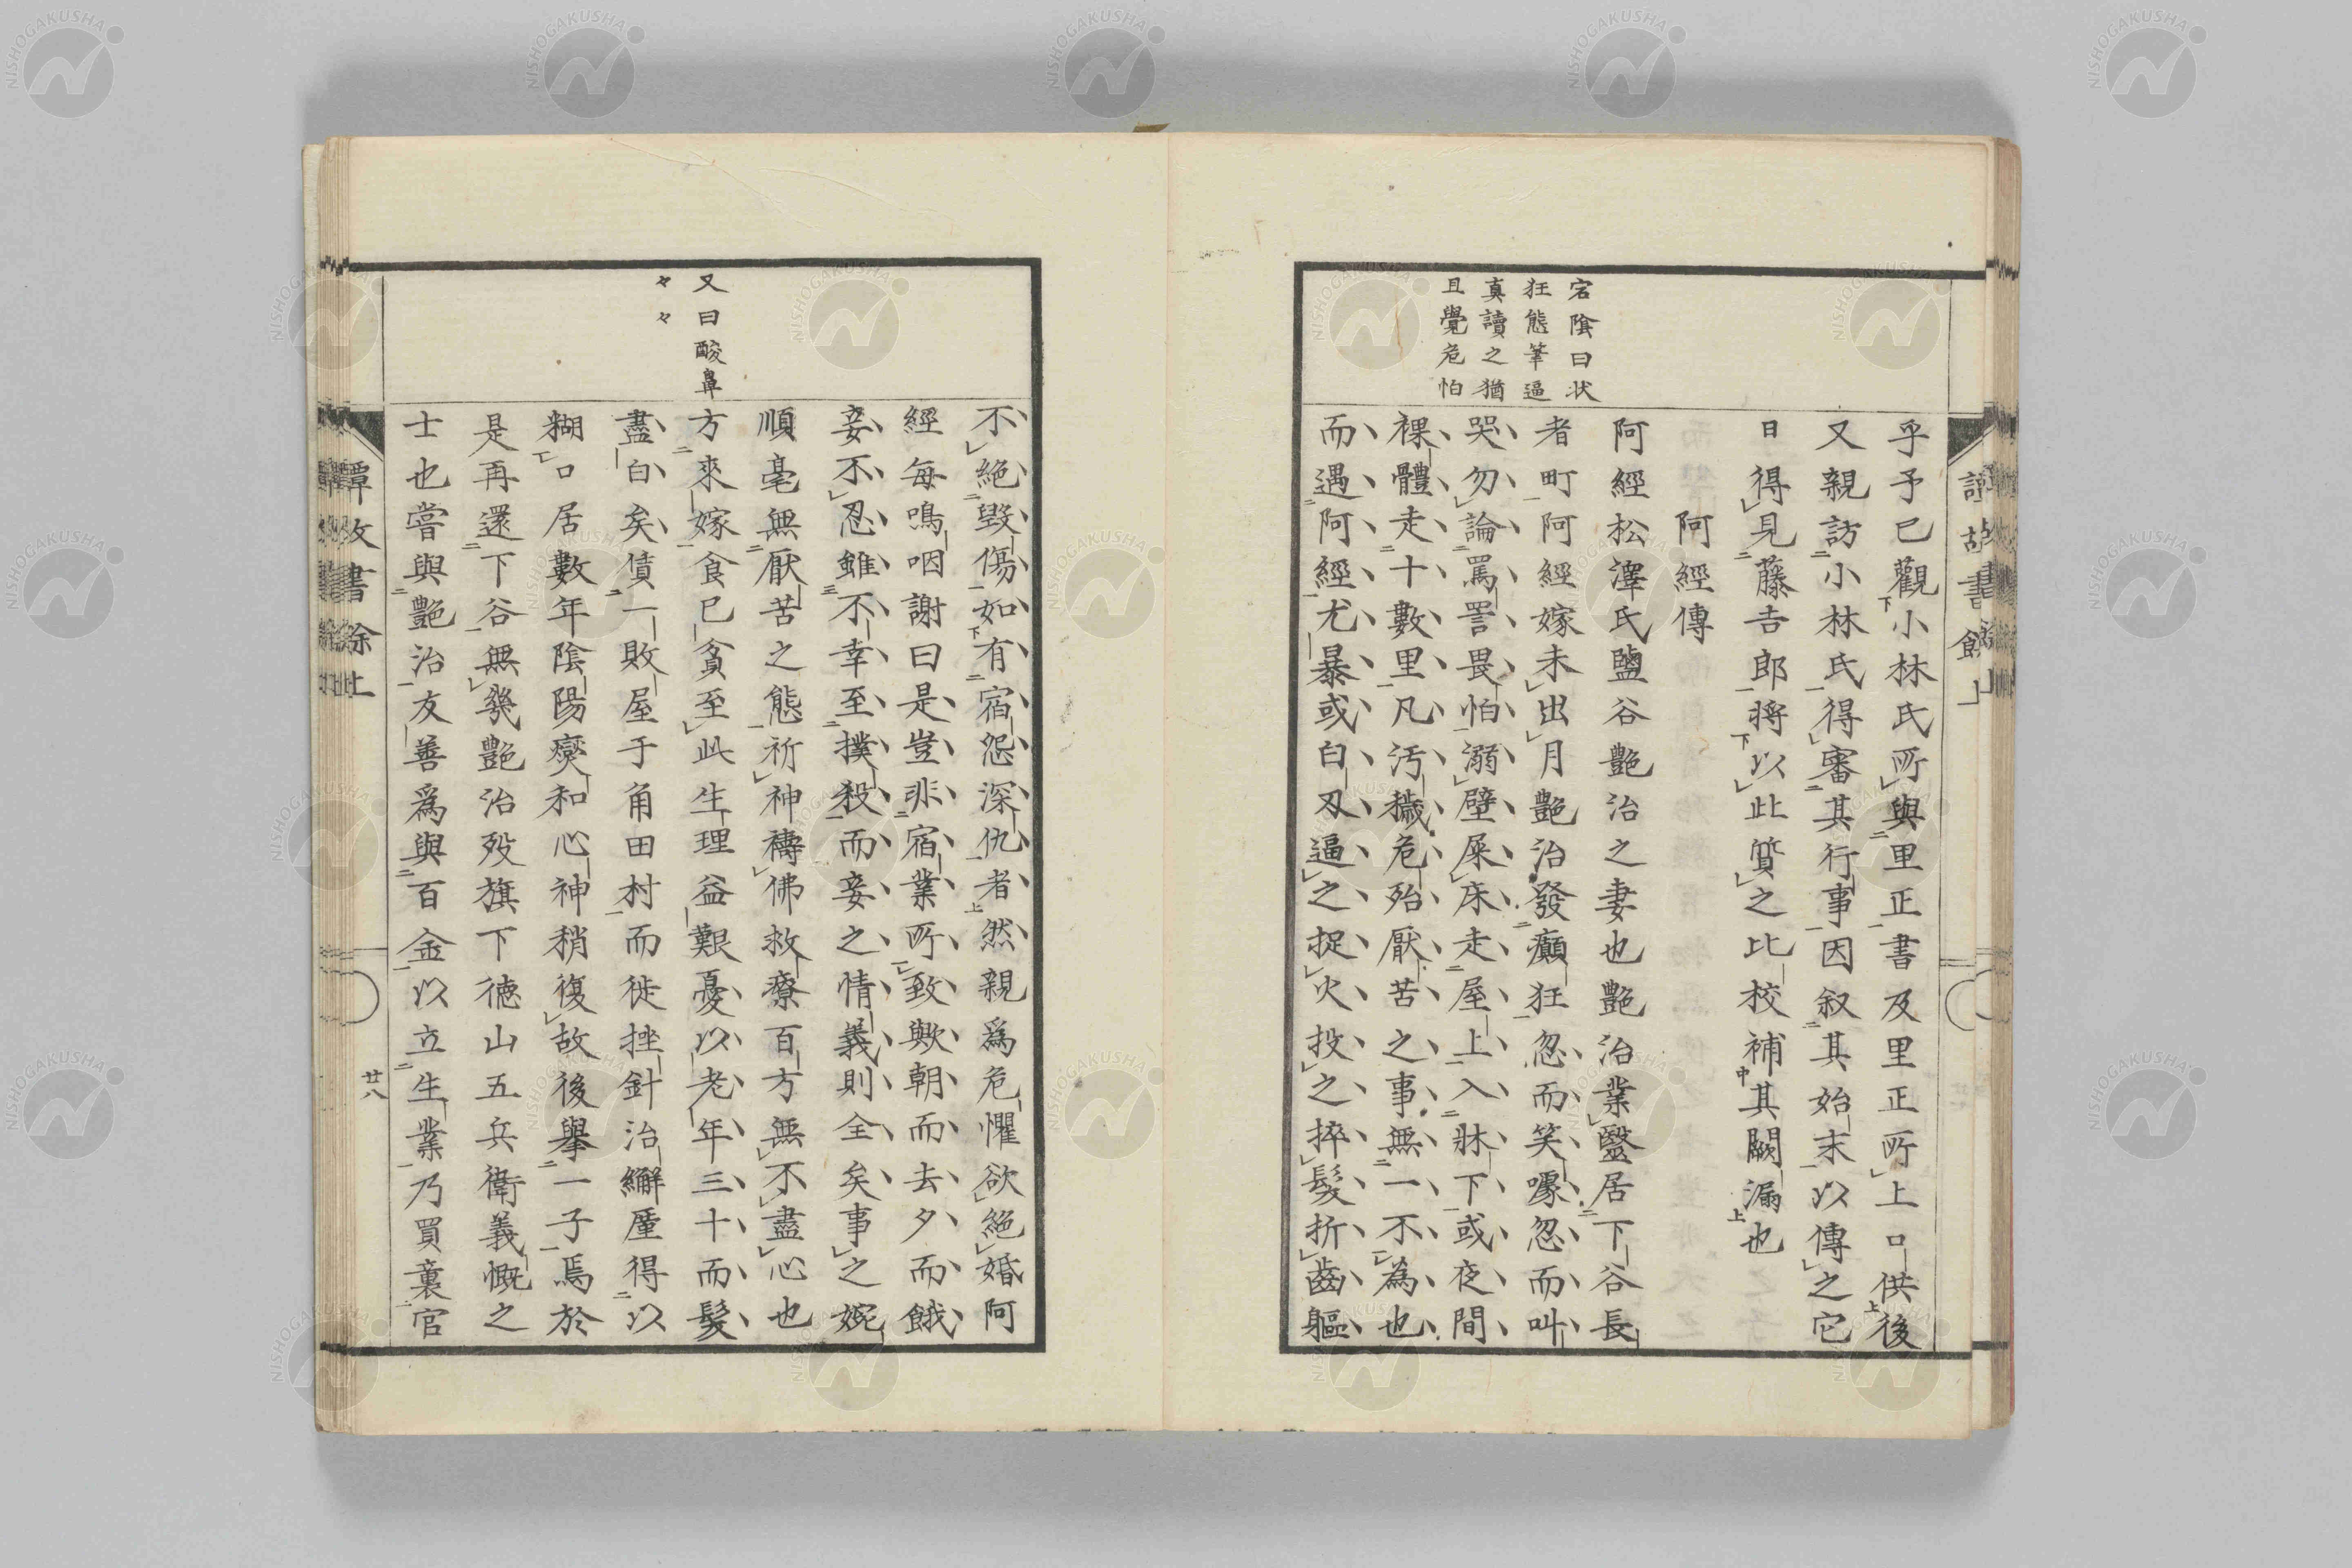 乎予已觀小林氏所與里正書及里正所上口供後
又親訪小林氏得審其行事因叙其始末以傳之它
日得見藤吉郎將以此質之比校補其闕漏也
阿經傳
阿經松澤氏鹽谷艶治之妻也艶治業醫居下谷長
者町阿經嫁未出月艶治發癲狂忽而笑噱忽而叫
哭勿論罵詈畏怕溺壁屎床走屋上入牀下或夜間
裸體走十數里凡汚穢危殆厭苦之事無一不為也
而遇阿經尤暴或白刃逼之捉火投之捽髮折齒軀
宕陰曰状
狂態筆逼
真讀之猶
且覺危怕
不絕毀傷如有宿怨深仇者然親爲危懼欲絕婚阿
經每鳴咽謝曰是豈非宿業所致歟朝而去夕而餓
妾不忍雖不幸至撲殺而妾之情義則全矣事之婉
順毫無厭苦之態祈神禱佛救療百方無不盡心也
方來嫁食已貧至此生理益艱憂以老年三十而髮
盡白矣債一敗屋于角田村而徙挫針治繲廑得以
糊口居數年陰陽燮和心神稍復故後擧一子焉於
是再還下谷無幾艶治歿旗下德山五兵衛義慨之
士也嘗與艶治友善爲與百金以立生業乃買裏官
又曰酸鼻
々々
廿八